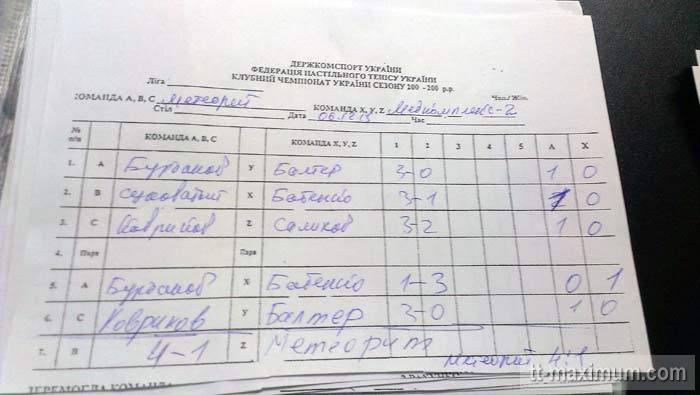 ДЕРЖКОМСПОРТ УКРАЇНИ
ФЕДЕРАЦІЯ НАСТІЛЬНОГО ТЕНІСУ УКРАЇНИ
КЛУБНИЙ ЧЕМПІОНАТ УКРАЇНИ СЕЗОНУ 200 - 200 р.р.
Ліга: Чол./ Жін.
КОМАНДА А, В, С Метеорит КОМАНДА X, Y, Z Медкомплекс-2
Стіл Дата 06.12.13 Час
№ п/п КОМАНДА А, В, С КОМАНДА X, Y, Z 1 2 3 4 5 А X
1. А Бурбанов У Балтер 3-0 1 0
2. В X Бабенко 3-1 1 0
3. С Ковриков Z Саликов 3-2 1 0
4. Пара Пара
5. А Бурбанов X Бабенко 1-3 0 1
6. С Ковриков У Балтер 3-0 1 0
7. В 4-1 Z Метеорит Метеорит 4:1
ПЕРЕМОГЛА КОМАНДА
tt-maximum.com